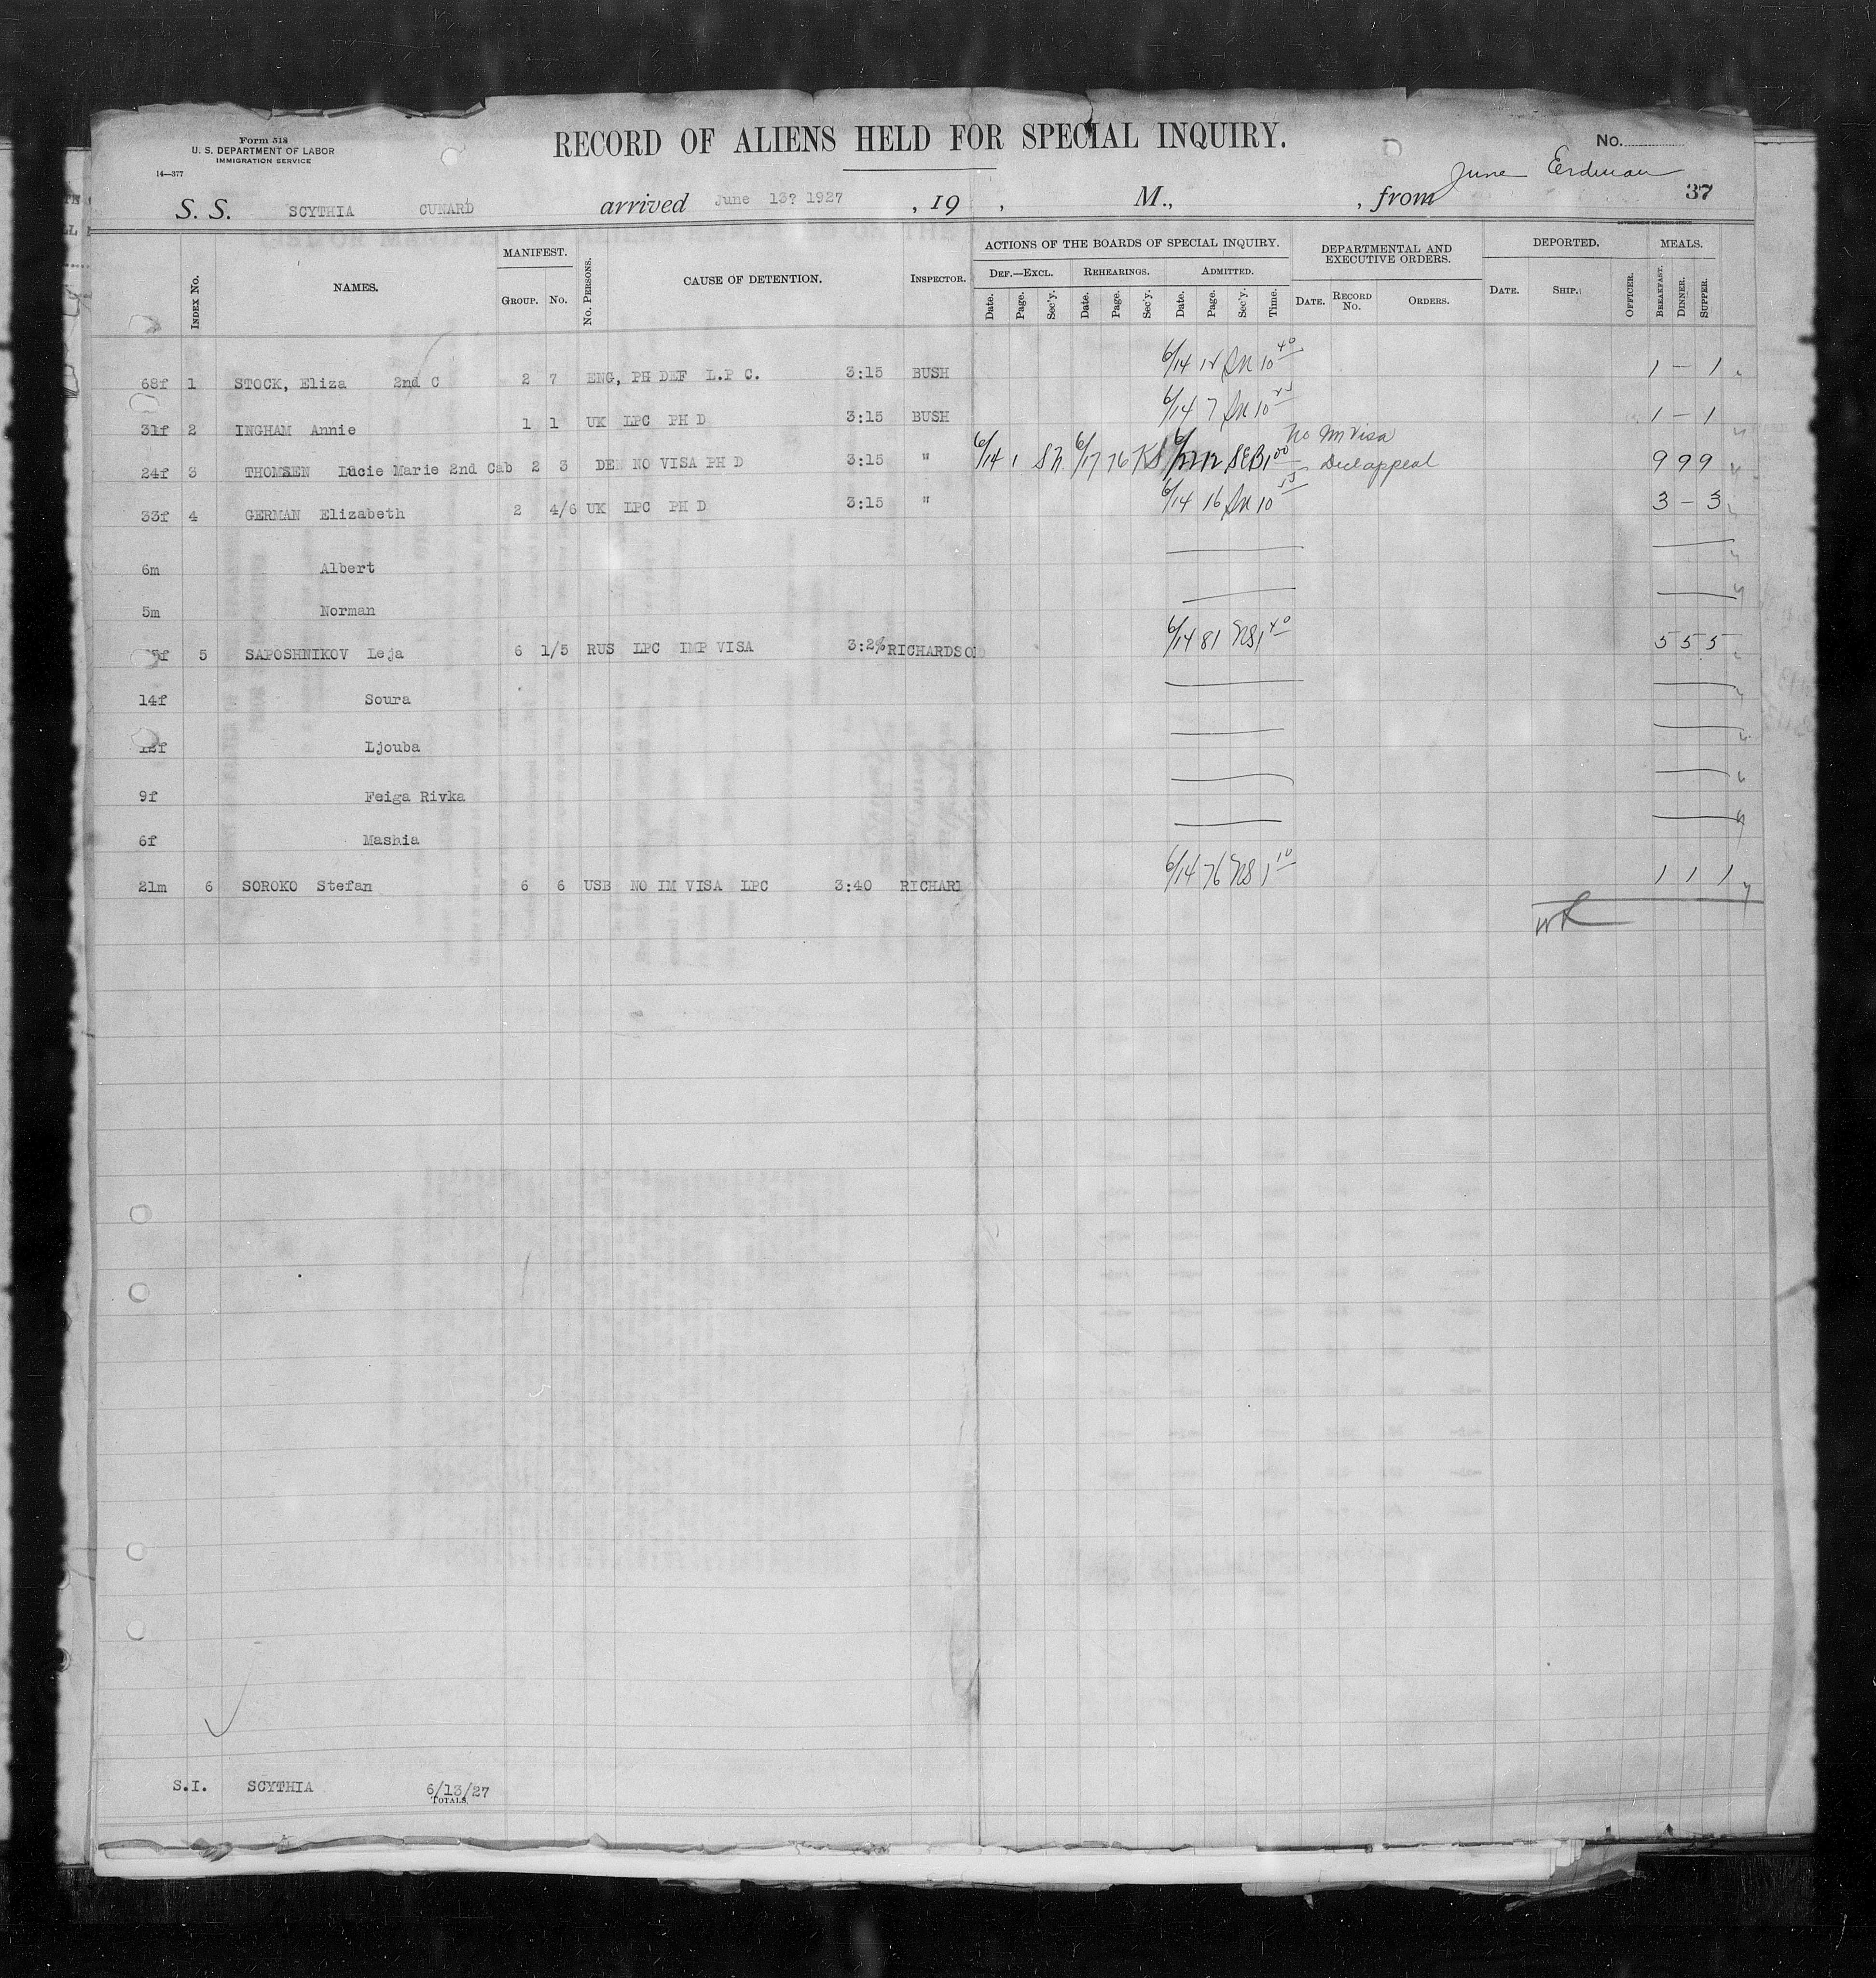 Form 518
U. S. DEPARTMENT OF LABOR
IMMIGRATION SERVICE
14—377
RECORD OF ALIENS HELD FOR SPECIAL INQUIRY.
No.
June Erdman
37
S. S. SCYTHIA CUNARD arrived June 13? 1927 , 19 , M., , from
INDEX No. NAMES. MANIFEST. GROUP. NO. No. PERSONS. CAUSE OF DETENTION. INSPECTOR. ACTIONS OF THE BOARDS OF SPECIAL INQUIRY. DEF.—EXCL. Date. Page. Sec'y. REHEARINGS. Date. Page. Sec'y. ADMITTED. Date. Page. Sec'y. Time. DEPARTMENTAL AND EXECUTIVE ORDERS. DATE. RECORD No. ORDERS. DEPORTED. DATE. SHIP. OFFICER. MEALS. BREAKFAST. DINNER. SUPPER.
68f 1 STOCK, Eliza 2nd C 2 7 ENG, PH DEF L.P C. 3:15 BUSH 6/14 12 10 40 1 — 1
31f 2 INGHAM Annie 1 1 UK LPC PH D 3:15 BUSH 6/14 7 10 1 — 1
No Im Visa
24f 3 THOMSEN Lucie Marie 2nd Cab 2 3 DEN NO VISA PH D 3:15 " 6/14 1 6/17 76 KS SEB 1 00 appeal 9 9 9
33f 4 GERMAN Elizabeth 2 4/6 UK LPC PH D 3:15 " 6/14 16 10 55 3 — 3
6m Albert
5m Norman
5f 5 SAPOSHNIKOV Leja 6 1/5 RUS LPC IMP VISA 3:2 RICHARDSO 6/14 81 1 40 5 5 5
14f Soura
12f Ljouba
9f Feiga Rivka
6f Mashia
21m 6 SOROKO Stefan 6 6 USB NO IM VISA LPC 3:40 RICHARD 6/14 76 1 10 1 1 1
S.I. SCYTHIA 6/13/27
TOTALS.